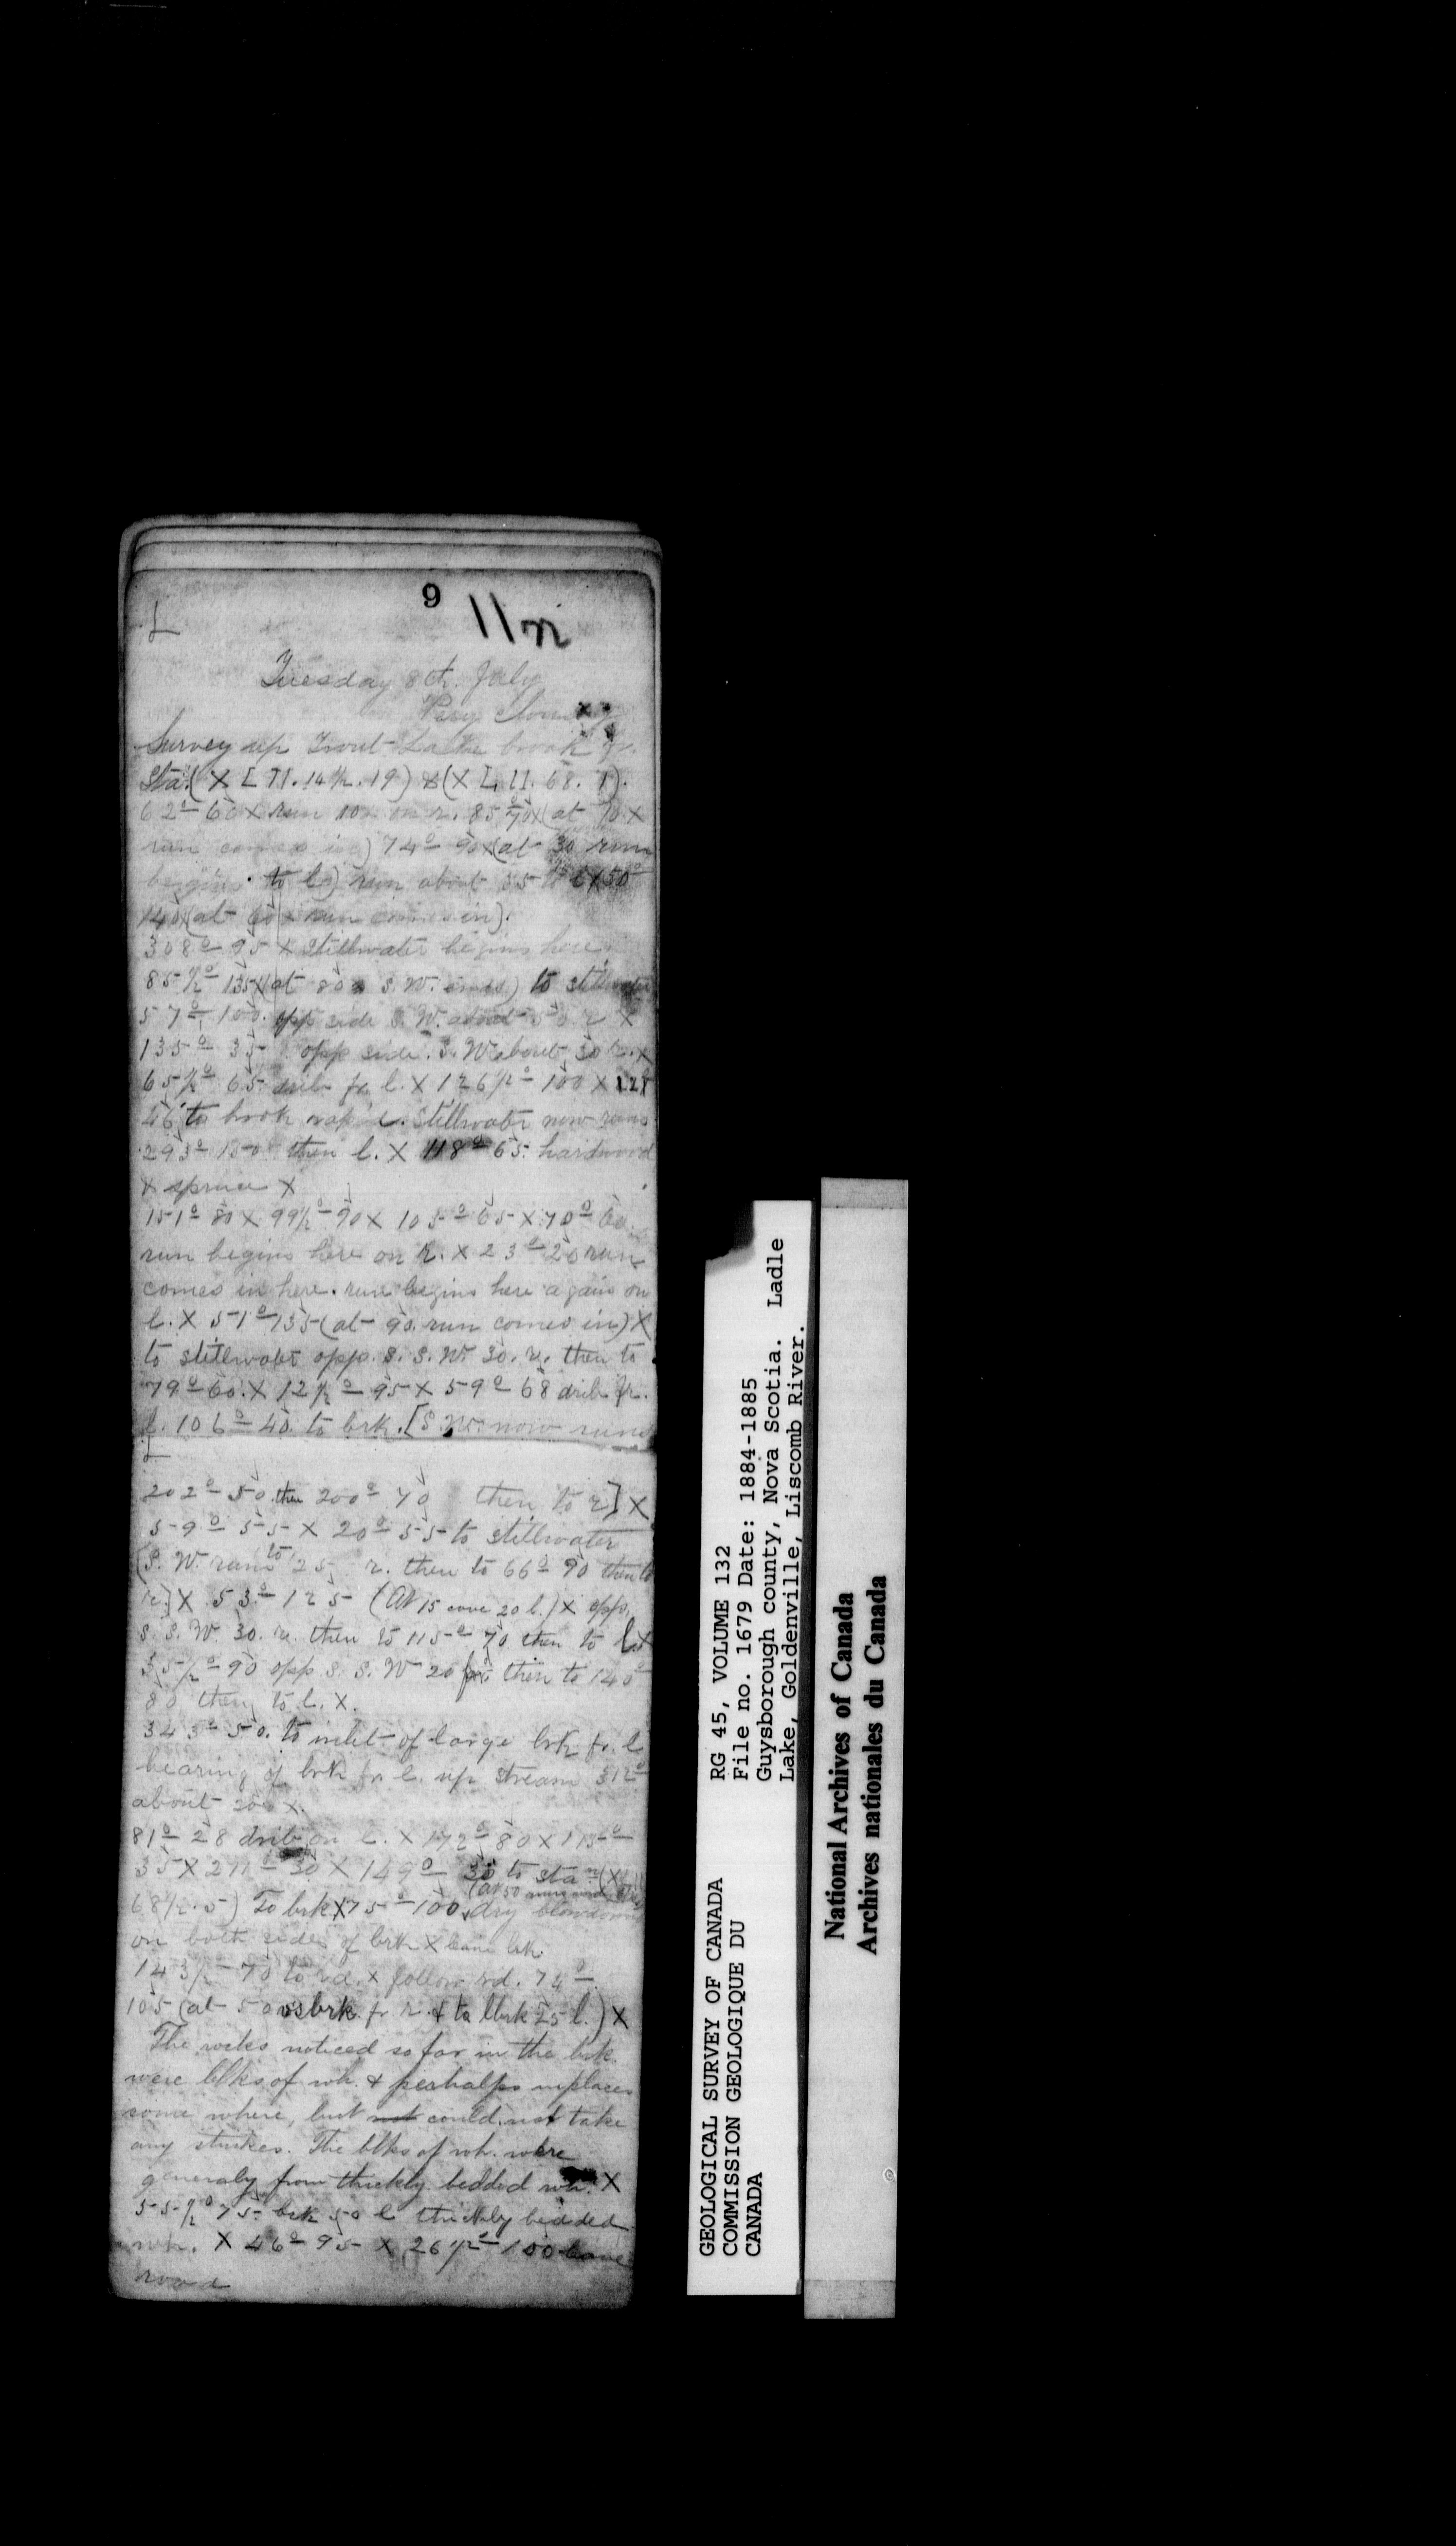 9
11
Tuesday 8th. July
Very
Survey up Trout Lake brook fr.
Sta. (X L 71. 14½. 19) & (X L 11. 68. 1).
62º 60 X run 10 on r. 85º 70 X (at 70 X
run comes in) 74º 90 X (at 30 run
begins to l.) run about 35 to 50º
140 X (at 60 X run comes in).
308º 95 X Stillwater begins here
85½º 135 X (at 80 S. W. ends) to stillwater
57º 100. opp side S. W. about r X
135º 35 opp side. S. W about 30 r. X
65½º 65 drib fr l. X 126½º 100 X
46 to brook stillwater now runs
293º 150 then l. X 118º 65. hardwood
X spruce X
151º 80 X 99½º 90 X 105º 65 X 70º 60.
run begins here on r. X 23º 20 run
comes in here. run begins here again on
l. X 51º 135 (at 90. run comes in) X
to stillwater opp. S. S. W. 30. r. then to
79º 60. X 12½º 95 X 59º 68 drib fr.
l. 106º 40. to brk. [S. W. now runs
202º 50 then 200º 70 then to r] X
59º 55 X 20º 55 to stillwater
[S. W. runs to 25 r. then to 66º 90 then to
r.] X 53º 125 (At 15 cove 20 l.) X opp.
S. S. W. 30. r. then to 115º 70 then to l X
35½º 90 opp S. S. W 20 then to 140º
80 then to l. X.
343º 50. to inlet of large brk fr. l
bearing of brk fr l. up stream 312º
about 20 X.
81º 28 drib on l. X 172º 80 X 115º
35 X 211º 30 X 149º 30 to sta. (X
(at 50
68½. 5) To brk X 75º 100. dry
on both sides of brk X leave brk.
143½º 70 to rd. X follow rd. 74º
105 (at 50 xs brk. fr r. & to lbrk 25 l.) X
The rocks noticed so far in the brk.
were blks of wh. & perhalps inplaces
some where, but not could not take
any strikes. The blks of wh. were
generaly from thickly bedded wh. X
55½º 75. brk 50 l thickly bedded
wh. X 46º 95 X 26½º 100 leave
road
RG 45, VOLUME 132
File no. 1679 Date: 1884-1885
Guysborough county, Nova Scotia. Ladle
Lake, Goldenville, Liscomb River.
GEOLOGICAL SURVEY OF CANADA
COMMISSION GEOLOGIQUE DU
CANADA
National Archives of Canada
Archives nationales du Canada